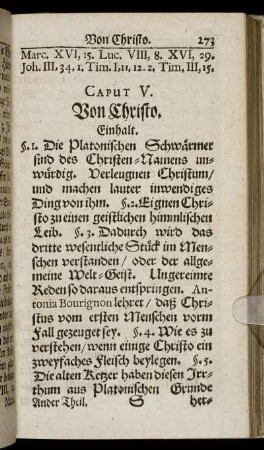 Von Christo. 273
Marc. XVI, 15. Luc. VIII, 8. XVI, 29.
Joh. III. 34. 1. Tim. I. 11, 12. 2. Tim, III, 15.
CAPUT V.
Von Christo.
Einhalt.
§. 1. Die Platonischen Schwärmer
sind des Christen-Namens un-
würdig. Verleugnen Christum/
und machen lauter inwendiges
Ding von ihm. §. 2. Eignen Chri-
sto zu einen geistlichen himmlischen
Leib. §. 3. Dadurch wird das
dritte wesentliche Stück im Men-
schen verstanden/ oder der allge-
meine Welt-Geist. Ungereimte
Reden so daraus entspringen. An-
tonia Bourignon lehret/ daß Chri-
stus vom ersten Menschen vorm
Fall gezeuget sey. §. 4. Wie es zu
verstehen/ wenn einige Christo ein
zweyfaches Fleisch beylegen. §. 5.
Die alten Ketzer haben diesen Irr-
thum aus Platonischen Grunde
Ander Theil. S her-